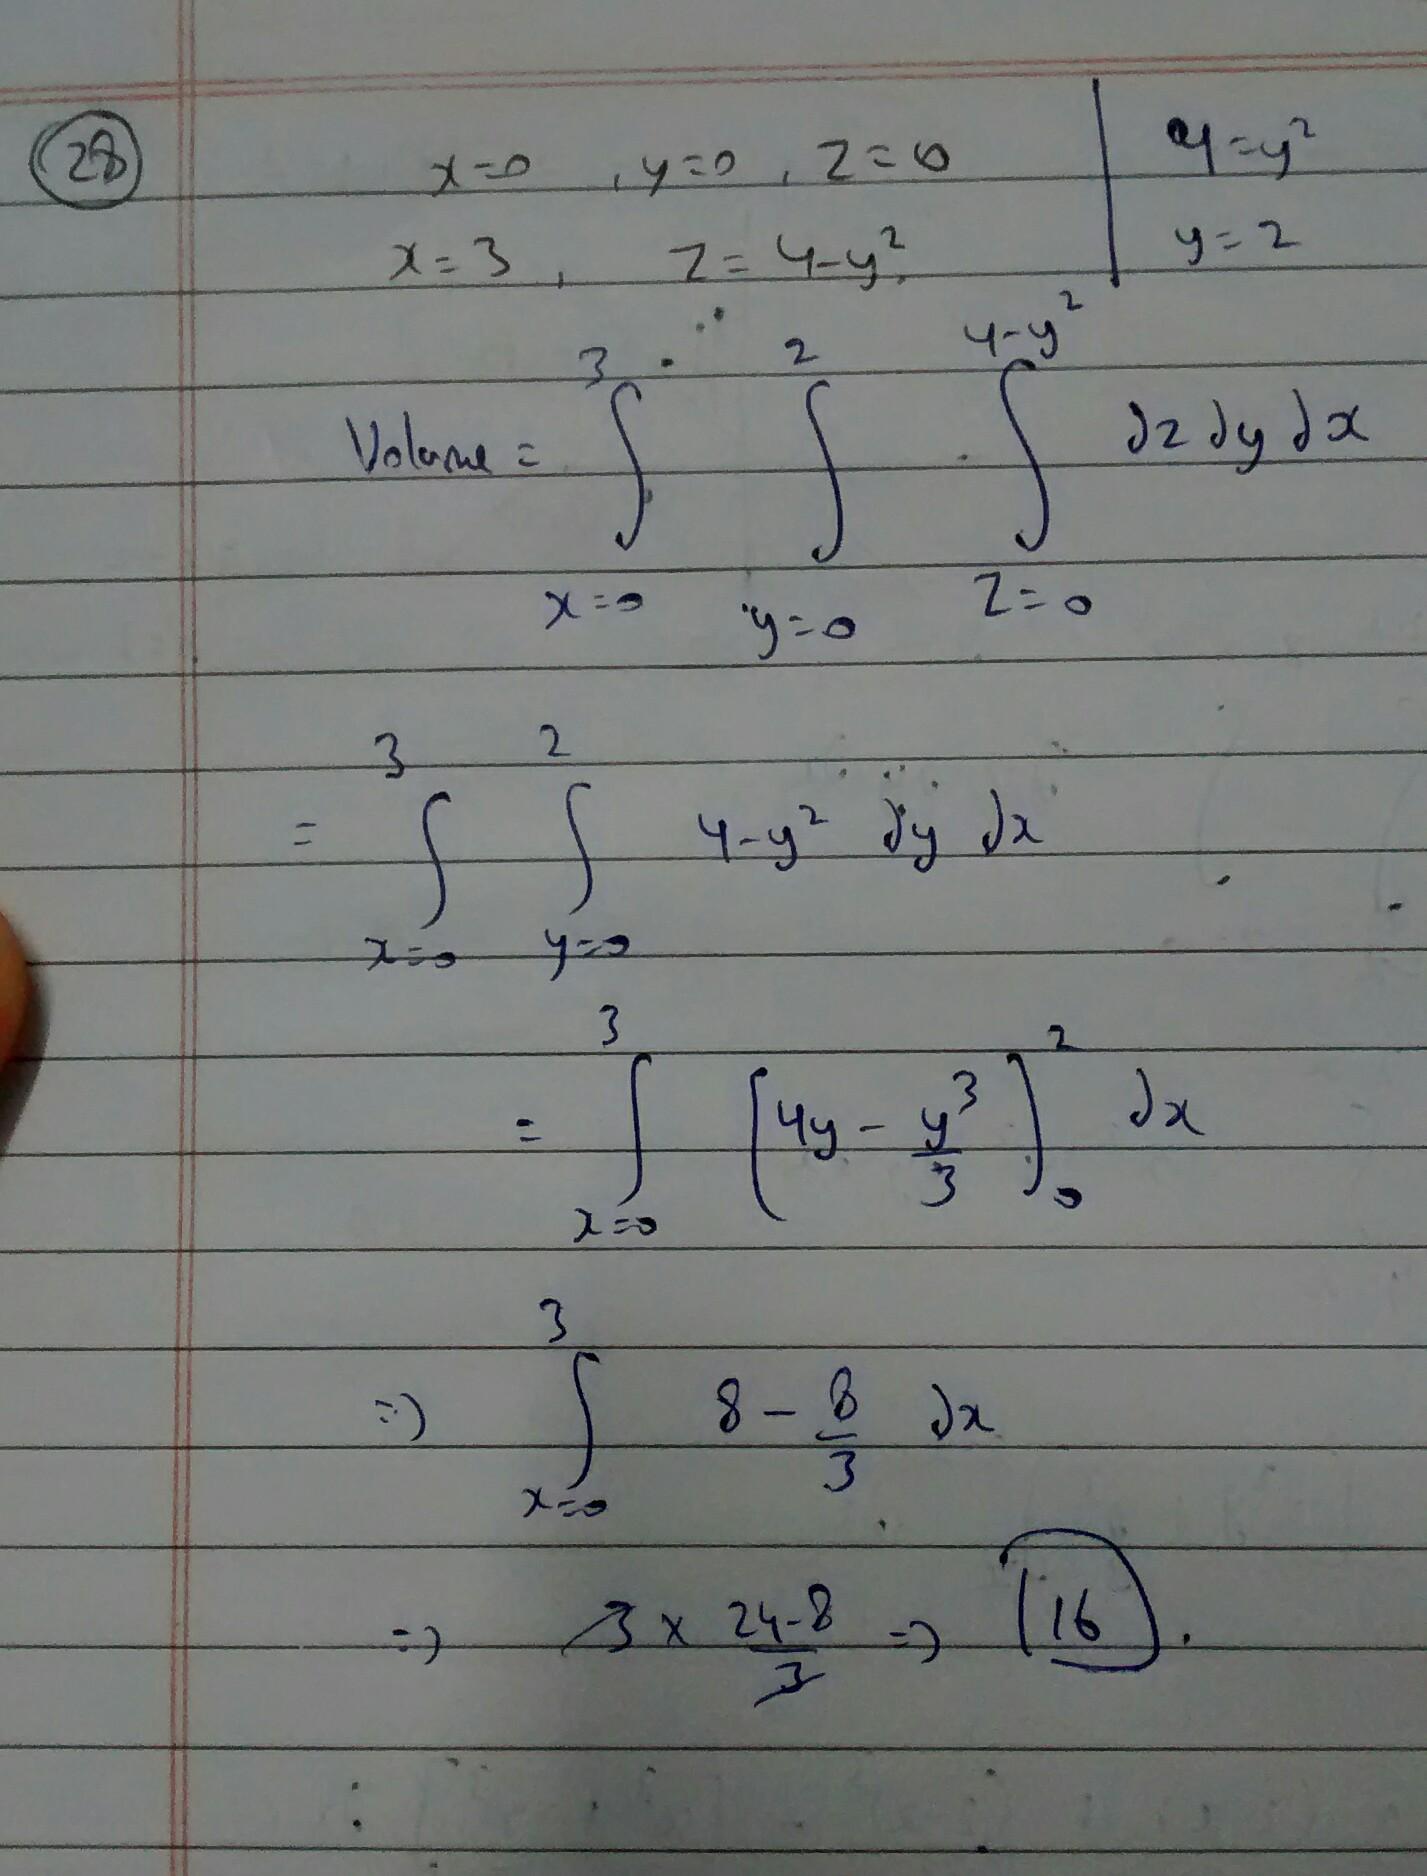 28
x=0 , y=0 , z=0
x=3 , z=4-y²
4=y²
y=2
Volume = ∫_{x=0}^{3} ∫_{y=0}^{2} ∫_{z=0}^{4-y²} dz dy dx
= ∫_{x=0}^{3} ∫_{y=0}^{2} 4-y² dy dx
= ∫_{x=0}^{3} [4y - y³/3]_0^2 dx
=> ∫_{x=0}^{3} 8 - 8/3 dx
=> 3 x (24-8)/3 => 16.